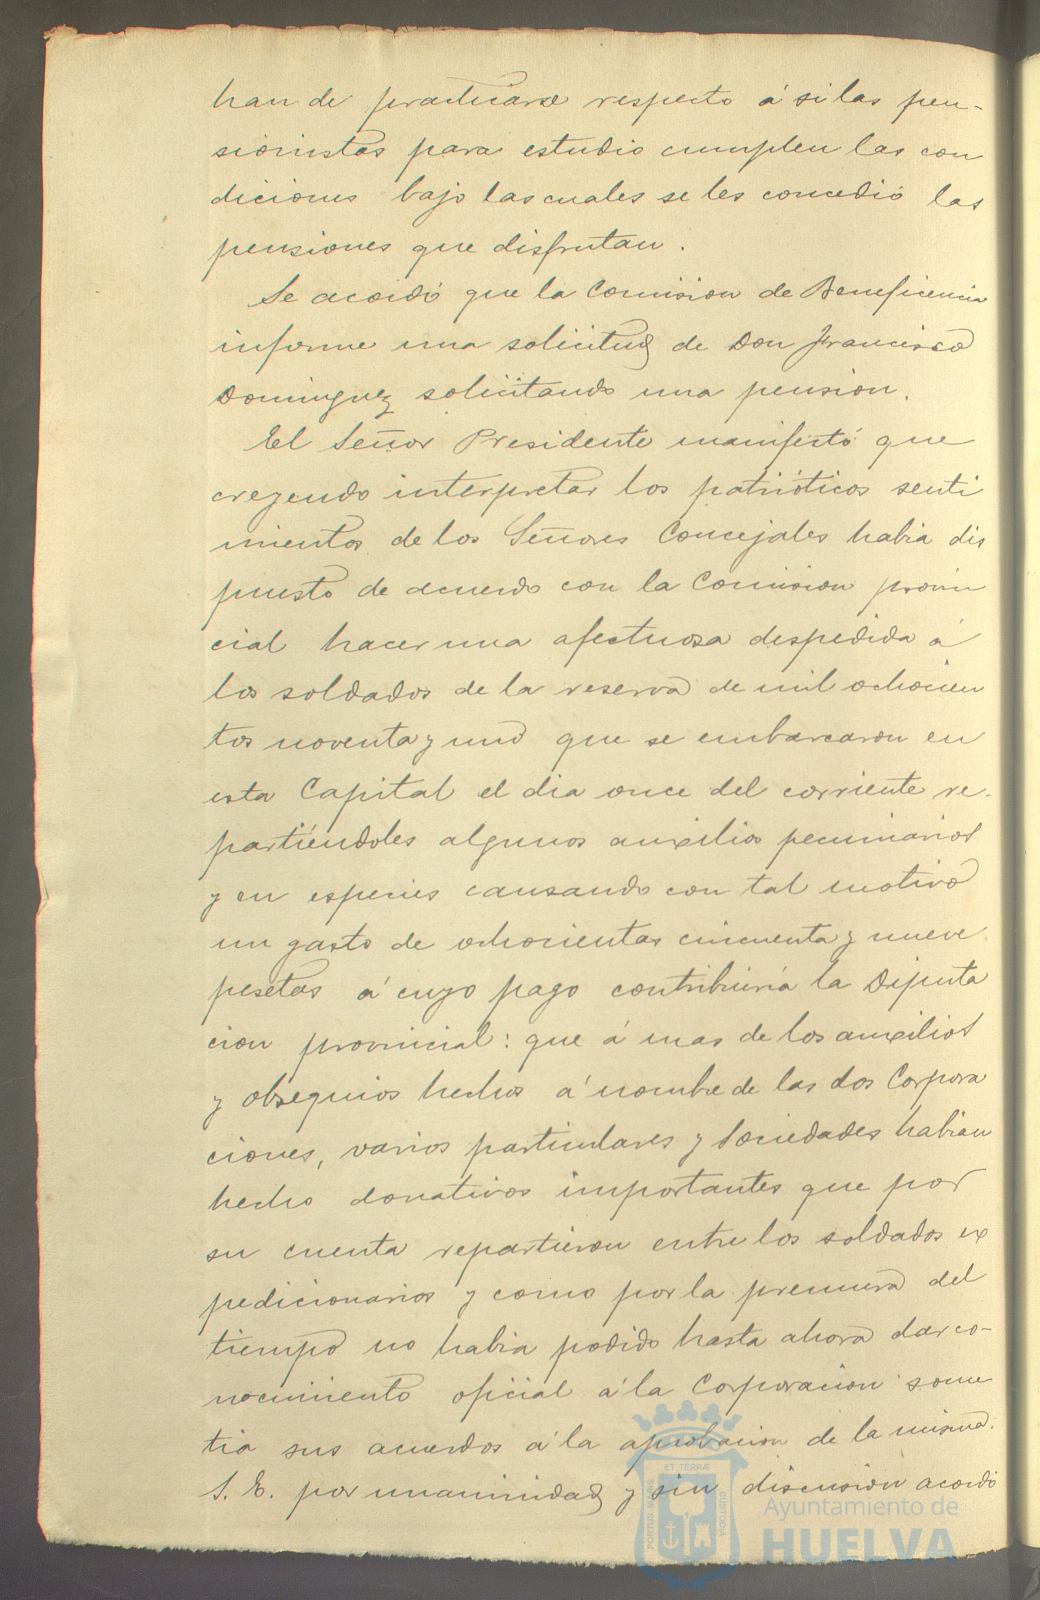 han de practicarse respecto á si las pen-
sionistas para estudio cumplen las con
diciones bajo las cuales se les concedió las
pensiones que disfrutan.
Se acordó que la Comision de Beneficencia
informe una solicitud de Don Francisco
Dominguez solicitando una pension.
El Señor Presidente manifestó que
creyendo interpretar los patrióticos senti
mientos de los Señores Concejales habia dis
puesto de acuerdo con la Comision provin
cial hacer una afectuosa despedida á
los soldados de la reserva de mil ochocien
tos noventa y uno que se embarcaron en
esta Capital el dia once del corriente re-
partiéndoles algunos auxilios pecuniarios
y en especies causando con tal motivo
un gasto de ochocientas cincuenta y nueve
pesetas á cuyo pago contribuiria la Diputa
cion provincial: que á mas de los auxilios
y obsequios hechos á nombre de las dos Corpora
ciones, varios particulares y Sociedades habian
hecho donativos importantes que por
su cuenta repartieron entre los soldados ex
pedicionarios y como por la premura del
tiempo no habia podido hasta ahora dar co-
nocimiento oficial á la Corporacion some
tia sus acuerdos á la aprobacion de la misma.
S. E. por unanimidad y sin discusion acordó
ET TERRÆ
PORTUS MARIS
CUSTODIA
Ayuntamiento de
HUELVA